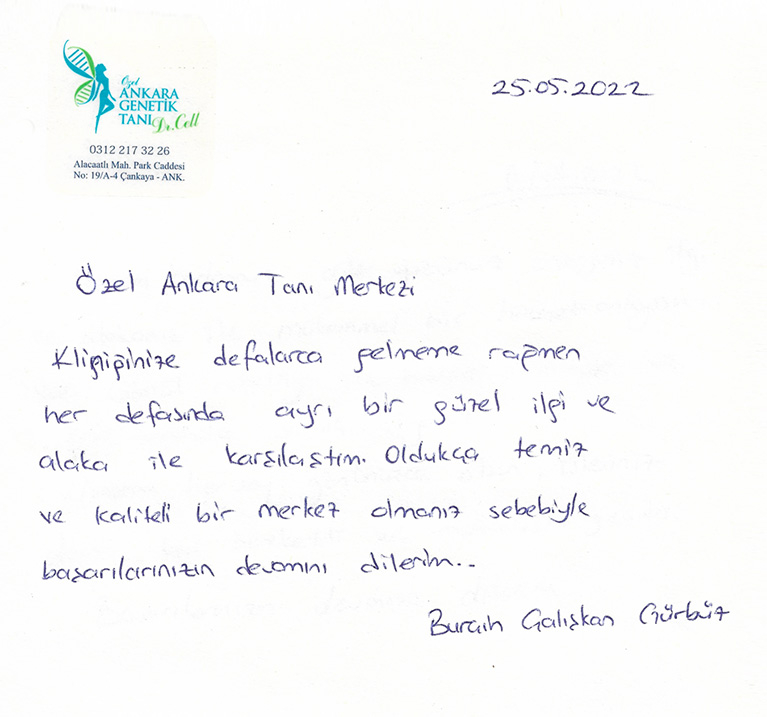 Özel
ANKARA
GENETİK
TANI Dr.Cell
0312 217 32 26
Alacaatlı Mah. Park Caddesi
No: 19/A-4 Çankaya - ANK.
25.05.2022
Özel Ankara Tanı Merkezi
Kliniğinize defalarca gelmeme rağmen
her defasında ayrı bir güzel ilgi ve
alaka ile karşılaştım. Oldukça temiz
ve kaliteli bir merkez olmanız sebebiyle
başarılarınızın devamını dilerim..
Burcih Çalışkan Gürbüz